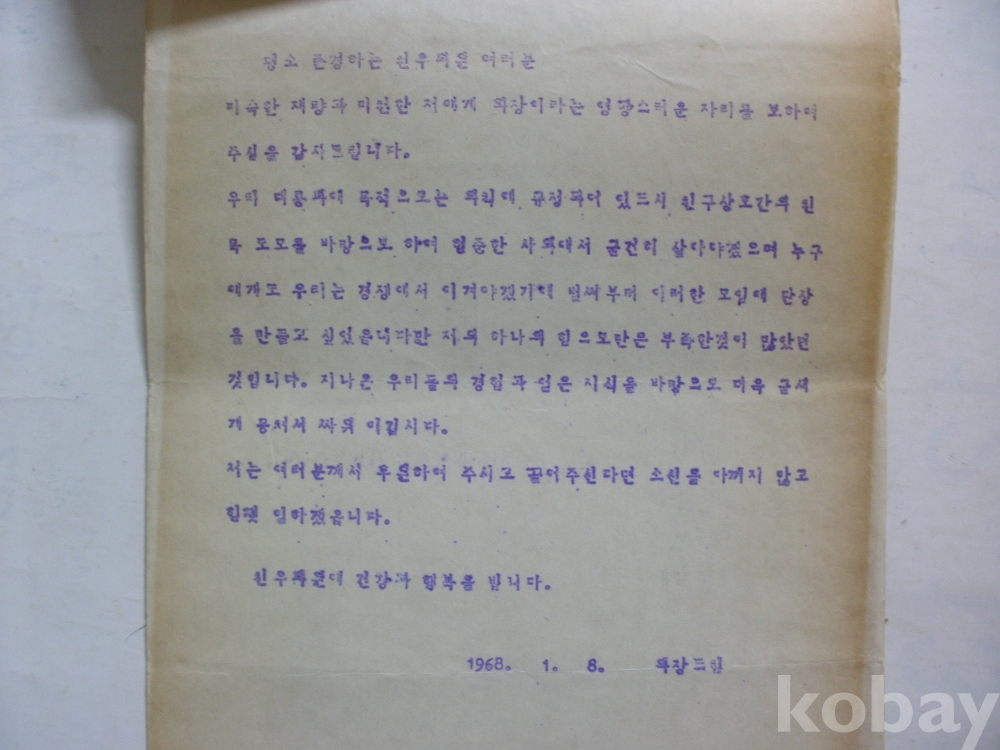 평소 존경하는 친우회원 여러분
미숙한 재량과 미흡한 저에게 회장이라는 영광스러운 자리를 보하여
주심을 감사드립니다.
우리 목적으로는 회칙에 규정되어 있드시 친구상호간의 친
목 도모를 바탕으로 하여 험준한 사회에서 굳건히 살아야겠으며 누구
에게도 우리는 경쟁에서 이겨야겠기에 벌써부터 이러한 모임에 단상
을 만들고 싶었읍니다만 저의 하나의 힘으로만은 부족한것이 많았던
것입니다. 지나온 우리들의 경험과 얻은 지식을 바탕으로 더욱 굳세
게 뭉처서 싸워 이깁시다.
저는 여러분께서 후원하여 주시고 끌어주신다면 소신을 아끼지 않고
힘껏 일하겠읍니다.
친우회원에 건강과 행복을 빕니다.
1968. 1. 8. 회장드림
kobay